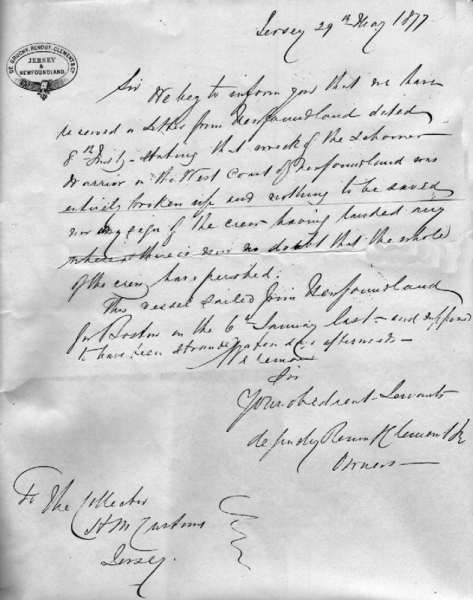 Jersey 29th May 1877
DE GRUCHY, RENOUF, CLEMENT & CO
JERSEY
&
NEWFOUNDLAND.
Sir We beg to inform you that we have
received a letter from Newfoundland dated
8th Inst, stating that wreck of the Schooner
Warrior on the West Coast of Newfoundland was
entirely broken up and nothing to be saved
nor any sign of the crew having landed any
where there is now no doubt that the whole
of the crew have perished.
This vessel sailed from Newfoundland
for Boston on the 6th January last - and
to have been stranded days afterwards -
We remain
Sir
Your obedient Servants
de Gruchy Renouf Clement &
Owners
To The Collector
H M Customs
Jersey.